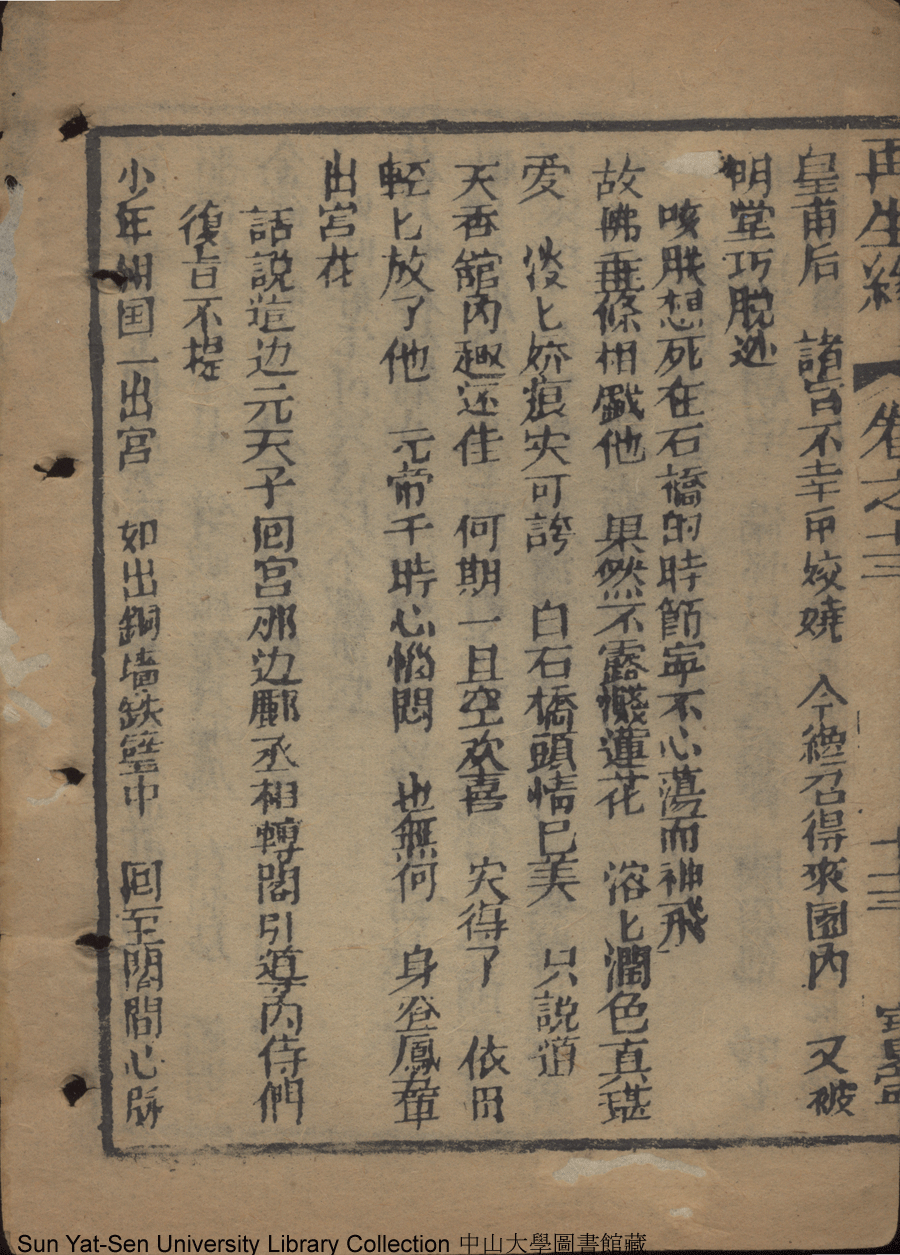 再生緣 卷之十三 十三
皇甫后 諸言不幸再姣嬈 今繞召得來園內 又被
明堂巧脱迯
咳朕想死在石橋的時節寧不心蕩而神飛
故佛垂條相戲他 果然不露機蓮花 溶匕潤色真堪
愛 淡匕嬌痕实可誇 白石橋頭情已美 只説道
天香館內趣还佳 何期一旦空欢喜 实得了 依旧
輕匕放了他 元帝千時心惱悶 也無何 身登鳳輦
出宮花
話説這边元天子囘宮那边酈丞相轉閣引導內侍們
復旨不提
少年相国一出宮 如出銅墙鉄壁中 囘至閣間心脉
Sun Yat-Sen University Library Collection 中山大學圖書館藏